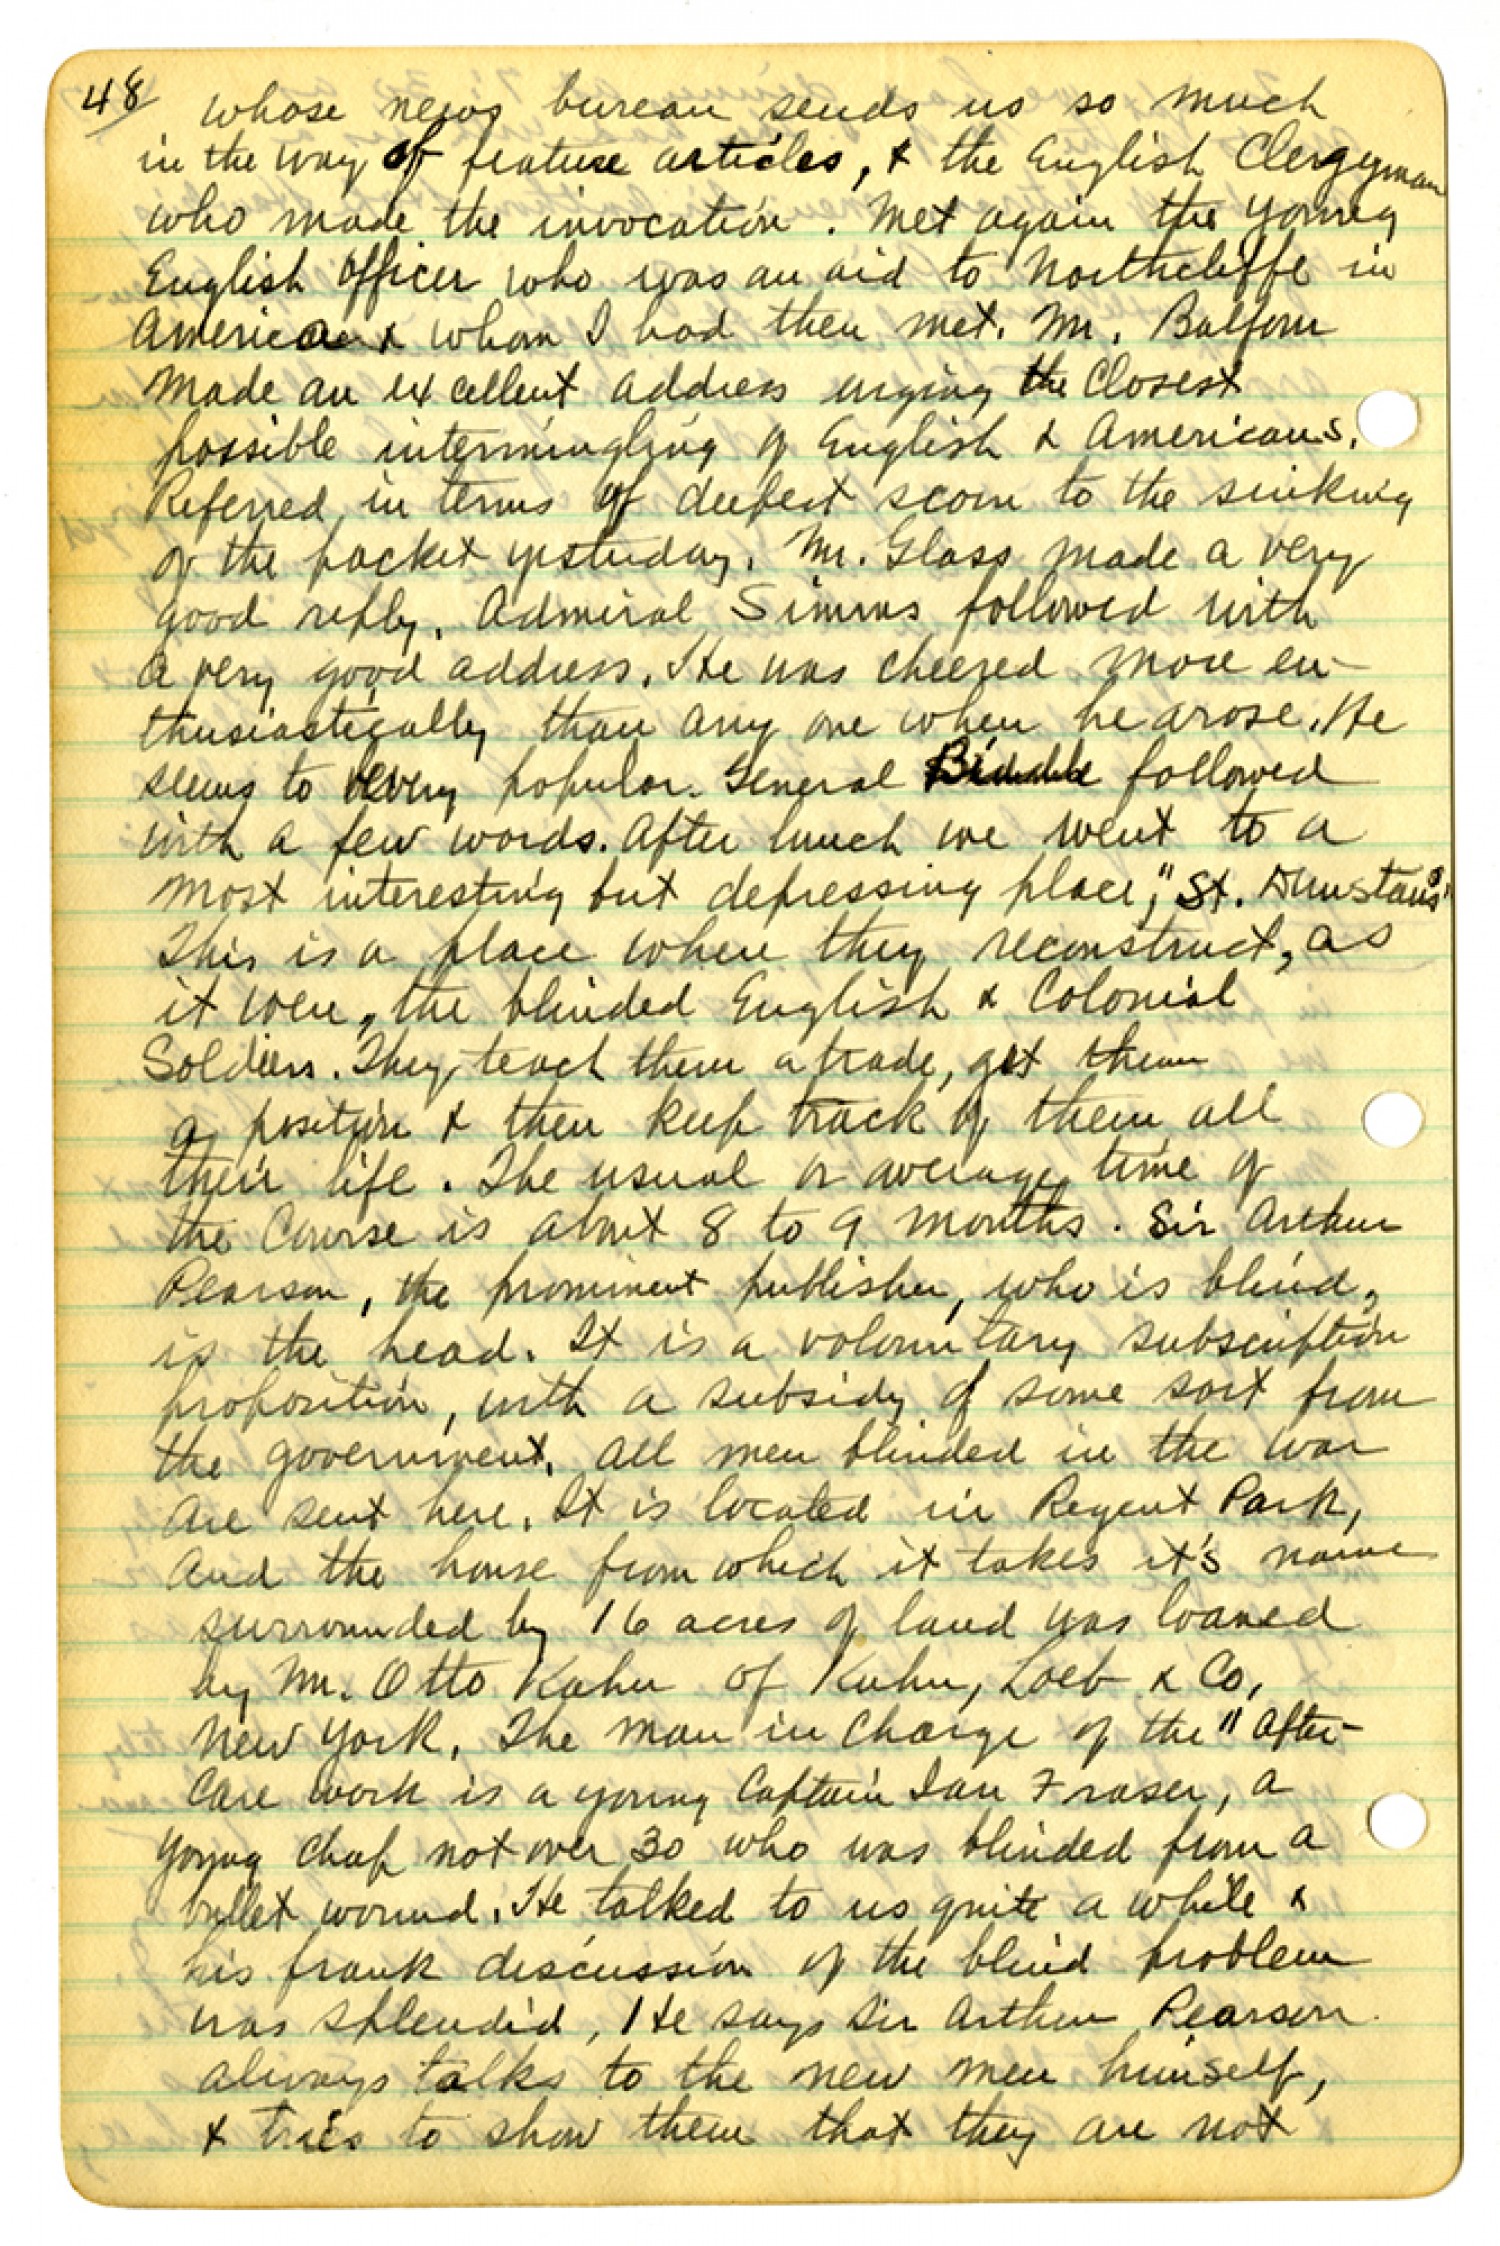 48
whose news bureau sends us so much
in the way of feature articles, & the English Clergyman
who made the invocation. Met again the young
English officer who was an aid to Northcliffe in
America & whom I had then met. Mr. Balfour
made an excellent address urging the closest
possible intermingling of English & Americans.
Referred in terms of deepest scorn to the sinking
of the packet yesterday. Mr. Glass made a very
good reply. Admiral Simms followed with
a very good address. He was cheered more en-
thusiastically than any one when he arose. He
seems to very popular. General Biddle followed
with a few words. After lunch we went to a
most interesting but depressing place, "St. Dunstan's"
This is a place where they reconstruct, as
it were, the blinded English & Colonial
Soldiers. They teach them a trade, get them
a position & then keep track of them all
their life. The usual or average time of
the Course is about 8 to 9 months. Sir Arthur
Pearson, the prominent publisher, who is blind,
is the head. It is a volountary subscription
proposition, with a subsidy of some sort from
the government. All men blinded in the war
are sent here. It is located in Regent Park,
and the house from which it takes it's name
surrounded by 16 acres of land was loaned
by Mr. Otto Kahn of Kuhn, Loeb & Co,
New York. The man in charge of the "after-
care work is a young Captain Ian Fraser, a
young chap not over 30 who was blinded from a
bullet wound. He talked to us quite a while &
his frank discussion of the blind problem
was splendid, He says Sir Arthur Pearson
always talks to the new men himself,
& tries to show them that they are not